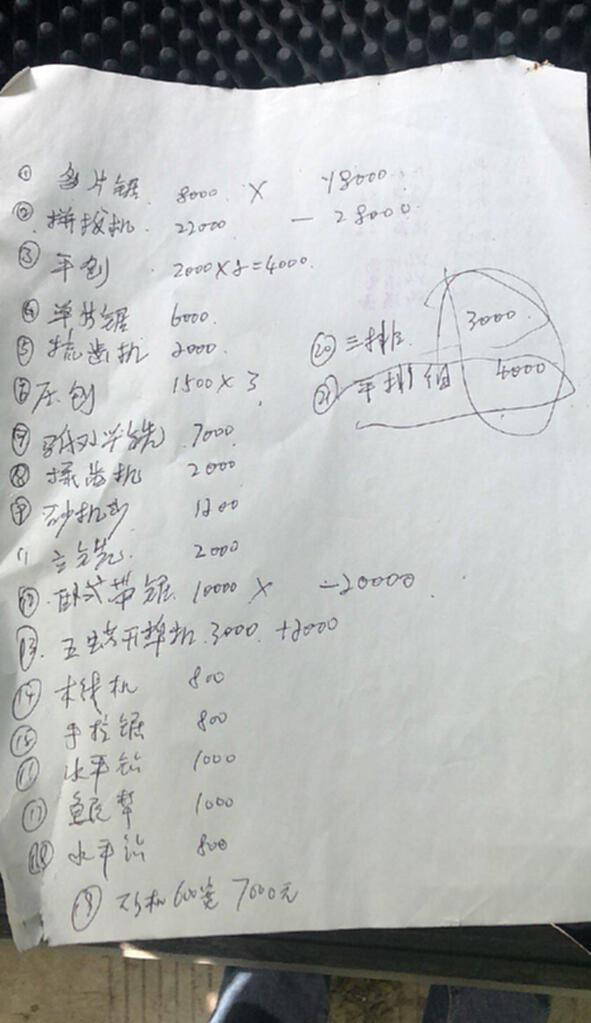 ① 多片锯 8000 X 18000
② 拼板机 22000 — 28000
③ 平刨 2000×2=4000
④ 单片锯 6000
⑤ 梳齿机 2000
⑥ 压刨 1500×3
⑦ 7000
⑧ 梳齿机 2000
⑨ 砂机 1200
11 立铣 2000
⑫ 卧式带锯 10000 X —20000
⑬ 五碟开榫机 3000 +2000
⑭ 木线机 800
⑮ 手拉锯 800
水平钻 1000
⑰ 1000
⑱ 水平钻 800
⑲ 砂机 600宽 7000元
⑳ 三排 3000
㉑ 平排钻 4000